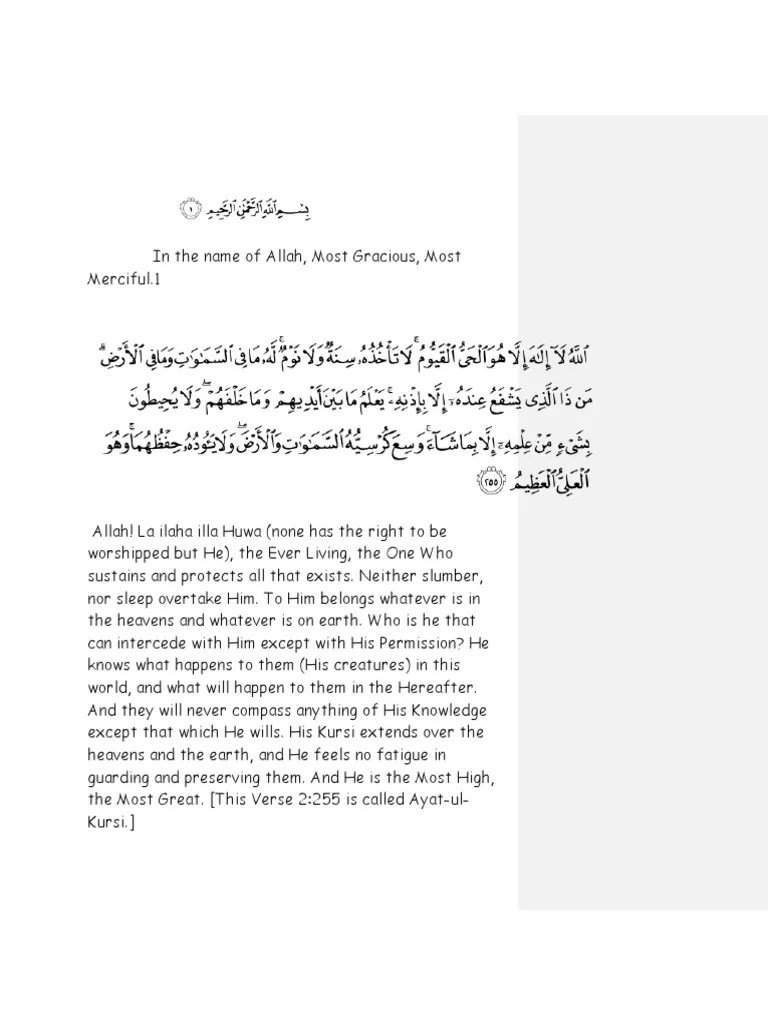 بِسْمِ ٱللَّهِ ٱلرَّحْمَٰنِ ٱلرَّحِيمِ ١
In the name of Allah, Most Gracious, Most
Merciful.1
ٱللَّهُ لَآ إِلَٰهَ إِلَّا هُوَ ٱلْحَىُّ ٱلْقَيُّومُ ۚ لَا تَأْخُذُهُۥ سِنَةٌ وَلَا نَوْمٌ ۚ لَّهُۥ مَا فِى ٱلسَّمَٰوَٰتِ وَمَا فِى ٱلْأَرْضِ ۗ
مَن ذَا ٱلَّذِى يَشْفَعُ عِندَهُۥٓ إِلَّا بِإِذْنِهِۦ ۚ يَعْلَمُ مَا بَيْنَ أَيْدِيهِمْ وَمَا خَلْفَهُمْ ۖ وَلَا يُحِيطُونَ
بِشَىْءٍ مِّنْ عِلْمِهِۦٓ إِلَّا بِمَا شَآءَ ۚ وَسِعَ كُرْسِيُّهُ ٱلسَّمَٰوَٰتِ وَٱلْأَرْضَ ۖ وَلَا يَـُٔودُهُۥ حِفْظُهُمَا ۚ وَهُوَ
ٱلْعَلِىُّ ٱلْعَظِيمُ ٢٥٥
Allah! La ilaha illa Huwa (none has the right to be
worshipped but He), the Ever Living, the One Who
sustains and protects all that exists. Neither slumber,
nor sleep overtake Him. To Him belongs whatever is in
the heavens and whatever is on earth. Who is he that
can intercede with Him except with His Permission? He
knows what happens to them (His creatures) in this
world, and what will happen to them in the Hereafter.
And they will never compass anything of His Knowledge
except that which He wills. His Kursi extends over the
heavens and the earth, and He feels no fatigue in
guarding and preserving them. And He is the Most High,
the Most Great. [This Verse 2:255 is called Ayat-ul-
Kursi.]